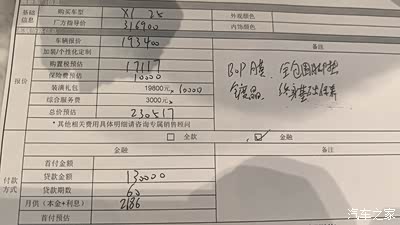 基础信息
购买车型 X1 25
外观颜色
厂方指导价 316900
内饰颜色
报价
车辆报价 193400
备注
加装/个性化定制
购置税预估 17117
保险费预估 10000
装潢礼包 19800元, 10000
综合服务费 3000元,
总价预估 230517
*其他相关费用具体明细请咨询专属销售顾问
全包围脚垫
镀晶、终身基础保养
全款
金融
付款方式
金融
备注
首付金额
贷款金额 130000
贷款期数 60
月供（本金+利息） 2186
首付预估
汽车之家